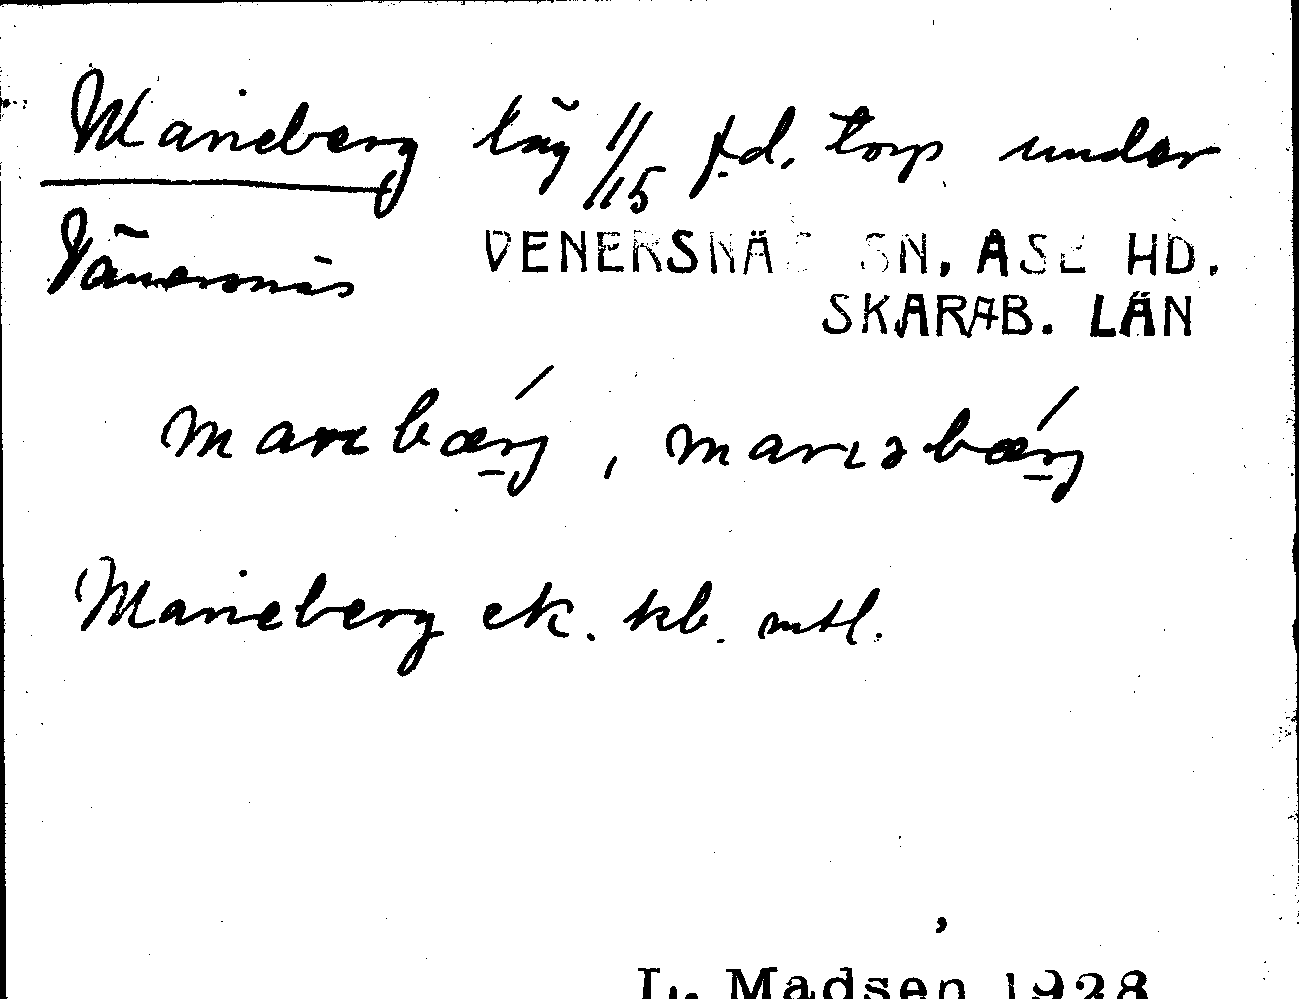 Marieberg läg 11/15 f.d. torp under
Vänersnäs VENERSNÄS SN. ASE HD.
SKARAB. LÄN
Marieberg ek. kb. mtl.
L. Madsen 1928